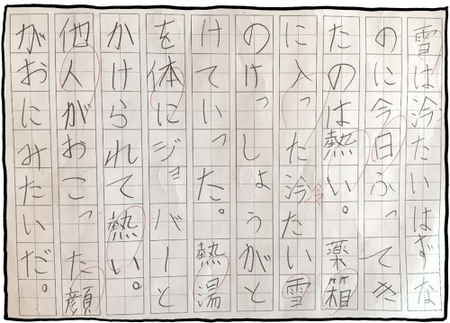 雪は冷たいはずな
のに今日ふってき
たのは熱い。薬箱
に入った冷たい雪
のけっしょうがと
けていった。熱湯
を体にジョバーと
かけられて熱い。
他人がおこった顔
がおにみたいだ。